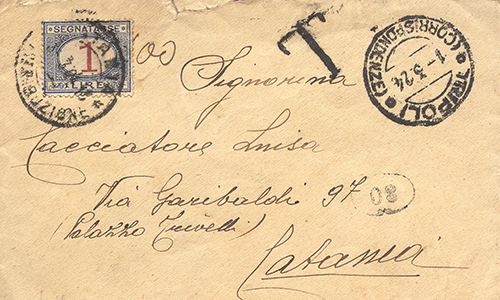 SEGNATASSE
1
LIRE
100
T
TRIPOLI
(CORRISPONDENZE)
1-3.24
Signorina
Cacciatore Luisa
Via Garibaldi 97
(Palazzo
08
Catania